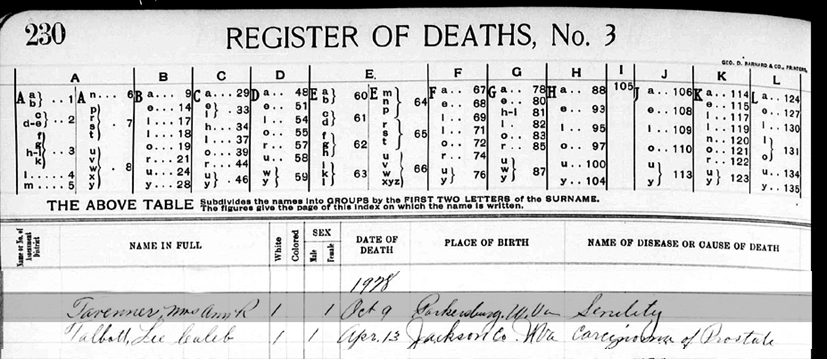 230
REGISTER OF DEATHS, No. 3
GEO. D. BARNARD & CO., PRINTERS,
A B C D E. F G H I J K L
A a b .. 1 A n .... 6 B a ... 9 C a ... 29 D a ... 48 E a b 60 E m n p 64 F a .. 67 G a ... 78 H a ... 88 105 J a ... 106 K a .. 114 L a .. 124
c d-e .. 2 p r s t . 7 e ... 14 e i 33 e ... 51 c d 61 e .. 68 e ... 80 e ... 93 e ... 108 e .. 115 e .. 127
f g h-i k .. 3 i ... 17 h ... 34 i ... 54 f g h 62 r s t 65 i ... 69 h-l 81 i .... 95 i .... 109 i ... 117 i ... 130
l ... 18 l ... 37 o ... 55 l ... 71 i ... 82 o ... 97 o ... 110 l ... 119 l o 131
o ... 19 o ... 39 r ... 57 o .. 72 o ... 83 n .. 120
u v w x y . 8 r ... 21 r ... 44 u ... 58 i k l 63 u v w xyz 66 r ... 74 r ... 85 u .. 100 u y 113 o .. 121
l ..... 4 u ... 24 u y 46 w y 59 u y 76 u w y 87 y .. 104 r .. 122 u .. 134
m .... 5 y ... 28 u y 123 y .. 135
THE ABOVE TABLE Subdivides the names into GROUPS by the FIRST TWO LETTERS of the SURNAME.
The figures give the page of this index on which the name is written.
Name or No. of Assessment District
NAME IN FULL
White
Colored
SEX
Male
Female
DATE OF DEATH
PLACE OF BIRTH
NAME OF DISEASE OR CAUSE OF DEATH
1928
Tavenner, Mrs Ann R 1 1 Oct 9 Parkersburg, W.Va Senility
Talbott, Lee Caleb 1 1 Apr. 13 Jackson Co W Va Carcinoma of Prostate